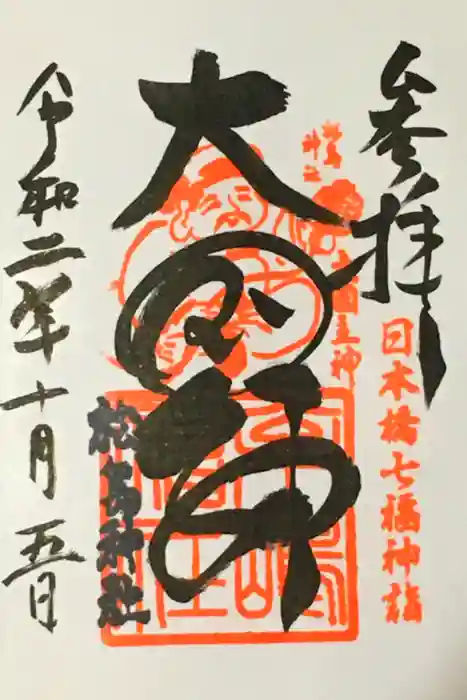 参拝
日本橋七福神詣
大国主神
大国神
松島神社
令和二年十月五日